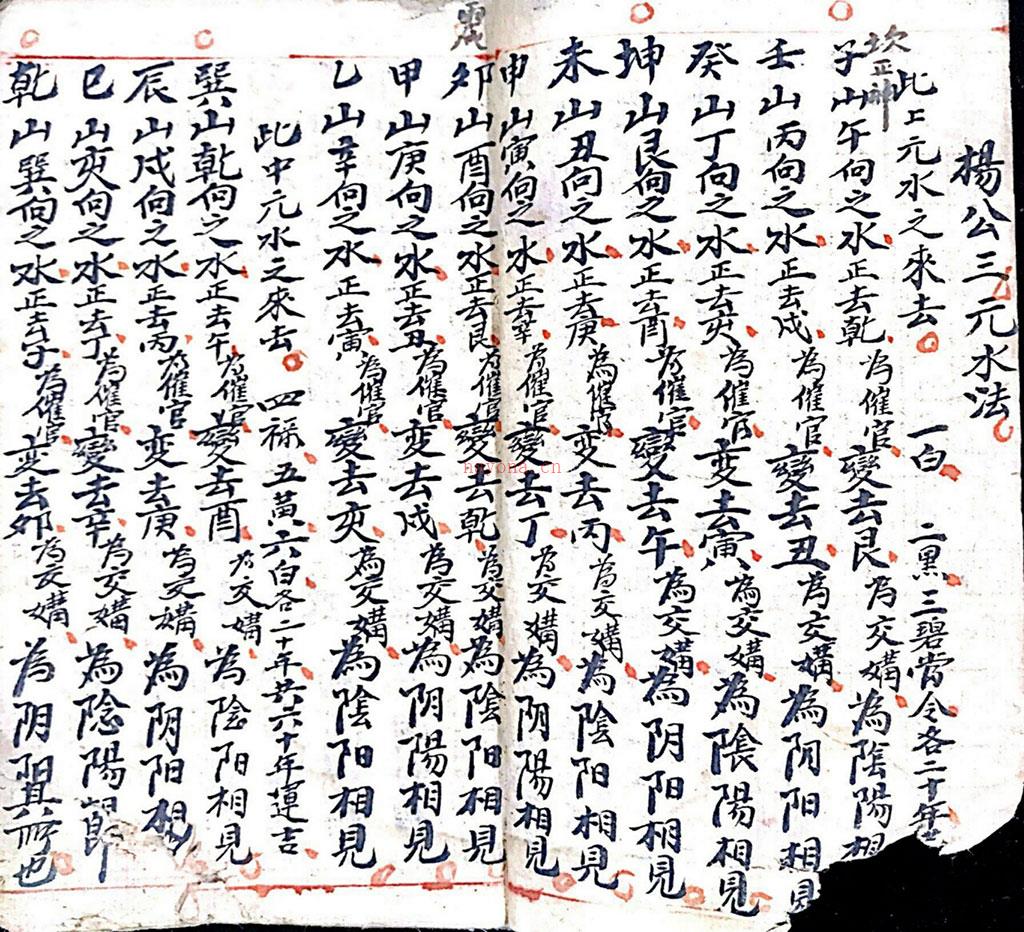 楊公三元水法
此上元水之來去 一白 二黑 三碧當令各二十年
坎正神
子山午向之水正去乾為催官變去艮為交媾為陰陽相
壬山丙向之水正去戌為催官變去丑為交媾為阴阳相見
癸山丁向之水正去亥為催官变去寅為交媾為陰陽相見
坤山艮向之水正去酉為催官變去午為交媾為阴阳相見
未山丑向之水正去庚為催官变去丙為交媾為陰阳相見
申山寅向之水正去辛為催官變去丁為交媾為阴陽相見
震
卯山酉向之水正去艮為催官變去乾為交媾為陰阳相見
甲山庚向之水正去丑為催官变去戌為交媾為阴陽相見
乙山辛向之水正去寅為催官變去亥為交媾為陰阳相見
此中元水之來去 四祿五黃六白各二十年共六十年運吉
巽山乾向之水正去午為催官變去酉為交媾為陰阳相見
辰山戌向之水正去丙為催官变去庚為交媾為阴阳相見
巳山亥向之水正去丁為催官變去辛為交媾為陰陽
乾山巽向之水正去子為催官变去卯為交媾為阴阳具所也
nayona.cn